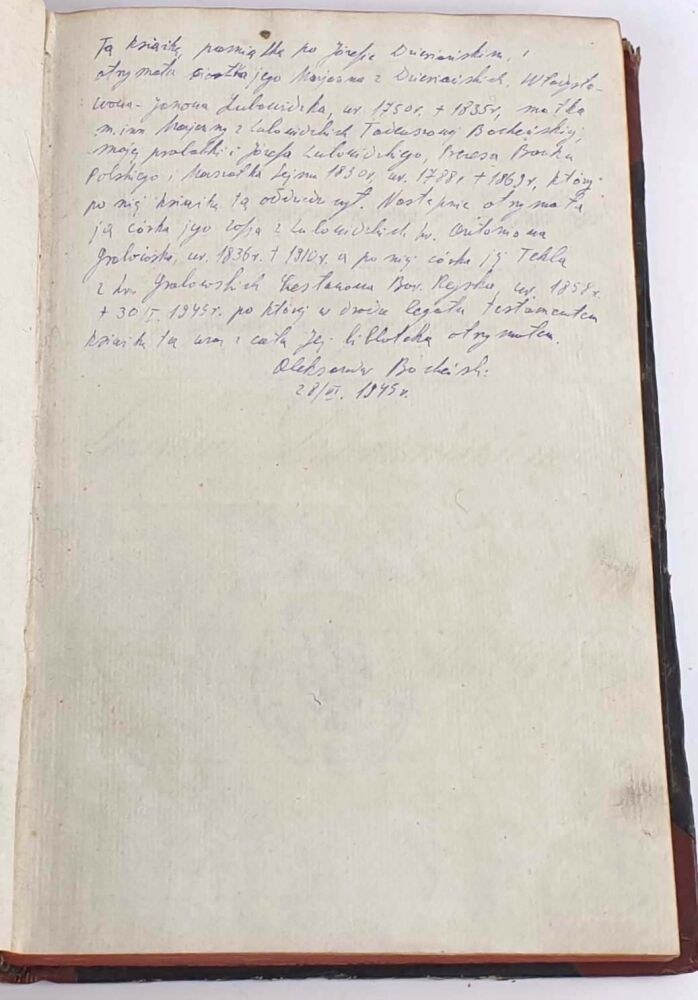 Tę książkę, pamiątkę po Józefie Dziesiańskim,
otrzymała ciotka jego Marjanna z Dziesiańskich, Władysła-
wowa-Janowa Lubowidzka, ur. 1750r. + 1835r, matka
m. inn. Marjanny z Lubowidzkich Tadeuszowej Bocheńskiej,
mojej prababki i Józefa Lubowidzkiego, Prezesa Banku
Polskiego i Marszałka Sejmu 1830r, ur. 1788r + 1869r, który
po niej książkę tą odziedziczył. Następnie otrzymała
ją córka jego Zofia z Lubowidzkich hr. Antoniowa
Grabowska, ur. 1836r. + 1910r. a po niej córka jej Tekla
z hr. Grabowskich Rejska, ur. 1858r.
+ 30 1945r. po której w drodze legatu testamentem
książkę tą wraz z całą jej biblioteką otrzymałem.
Aleksander Bocheński
28/VI. 1945r.